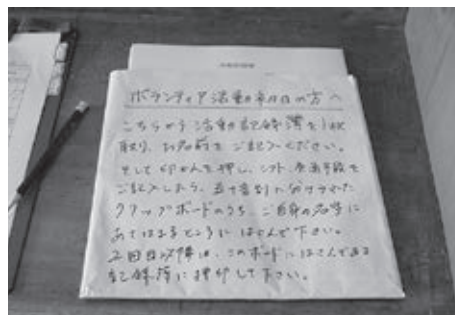 ボランティア活動初日の方へ
こちらから活動記録簿を1枚
取り、お名前をご記入ください。
そして印かんを押し、シフト、交通手段を
ご記入したら、五十音別に分けられた
クリップボードのうち、ご自身の名字に
あてはまるところにはさんで下さい。
2回目以降は、このボードにはさんである
記録簿に押印して下さい。